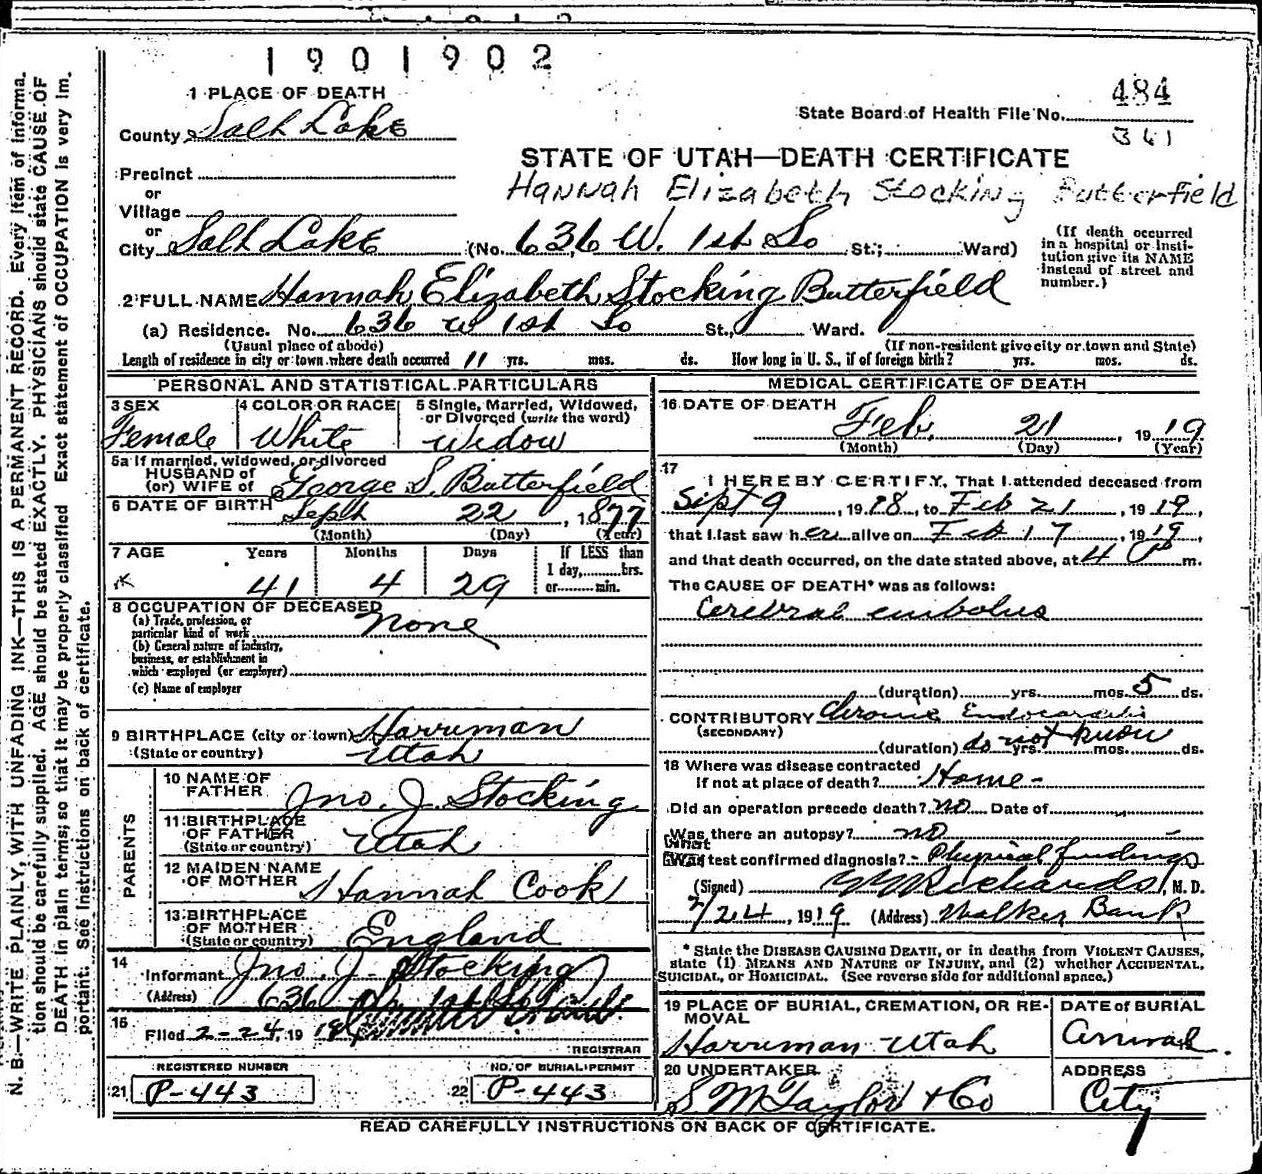 1901902
1 PLACE OF DEATH
484
State Board of Health File No.
361
County Salt Lake
STATE OF UTAH—DEATH CERTIFICATE
Precinct
Hannah Elizabeth Stocking Butterfield
or
Village
or
City Salt Lake (No. 636 W. 1st So St.; Ward)
(If death occurred in a hospital or institution give its NAME instead of street and number.)
2 FULL NAME Hannah Elizabeth Stocking Butterfield
(a) Residence. No. 636 W 1st So St., Ward.
(Usual place of abode) (If non-resident give city or town and State)
Length of residence in city or town where death occurred 11 yrs. mos. ds. How long in U. S., if of foreign birth? yrs. mos. ds.
PERSONAL AND STATISTICAL PARTICULARS
3 SEX 4 COLOR OR RACE 5 Single, Married, Widowed, or Divorced (write the word)
Female White Widow
5a If married, widowed, or divorced
HUSBAND of
(or) WIFE of George S. Butterfield
6 DATE OF BIRTH Sept 22, 1877
(Month) (Day) (Year)
7 AGE Years Months Days If LESS than
1 day, hrs.
or min.
41 4 29
8 OCCUPATION OF DECEASED
(a) Trade, profession, or
particular kind of work none
(b) General nature of industry,
business, or establishment in
which employed (or employer)
(c) Name of employer
9 BIRTHPLACE (city or town) Harriman
(State or country) Utah
PARENTS
10 NAME OF
FATHER Jno. J. Stocking
11 BIRTHPLACE
OF FATHER
(State or country) Utah
12 MAIDEN NAME
OF MOTHER Hannah Cook
13 BIRTHPLACE
OF MOTHER
(State or country) England
14
Informant Jno. J. Stocking
(Address) 636 1st So
15
Filed 2-24, 1919
REGISTRAR
REGISTERED NUMBER NO. OF BURIAL PERMIT
21 P-443 22 P-443
MEDICAL CERTIFICATE OF DEATH
16 DATE OF DEATH Feb. 21, 1919
(Month) (Day) (Year)
17
I HEREBY CERTIFY, That I attended deceased from
Sept 9, 1918, to Feb 21, 1919,
that I last saw her alive on Feb 17, 1919,
and that death occurred, on the date stated above, at 4 P m.
The CAUSE OF DEATH* was as follows:
Cerebral embolus
(duration) yrs. mos. 5 ds.
CONTRIBUTORY Chronic Endocarditis
(SECONDARY)
(duration) do not know yrs. mos. ds.
18 Where was disease contracted
if not at place of death? Home
Did an operation precede death? no Date of
Was there an autopsy? no
What test confirmed diagnosis? Physical findings
(Signed) Richards, M. D.
2/24, 1919 (Address) Walker Bank
*State the DISEASE CAUSING DEATH, or in deaths from VIOLENT CAUSES,
state (1) MEANS AND NATURE OF INJURY, and (2) whether ACCIDENTAL,
SUICIDAL, or HOMICIDAL. (See reverse side for additional space.)
19 PLACE OF BURIAL, CREMATION, OR RE-
MOVAL
Harriman Utah
DATE of BURIAL
Arrival.
20 UNDERTAKER
S M Taylor & Co
ADDRESS
City
READ CAREFULLY INSTRUCTIONS ON BACK OF CERTIFICATE.
N. B.—WRITE PLAINLY, WITH UNFADING INK—THIS IS A PERMANENT RECORD. Every item of informa-
tion should be carefully supplied. AGE should be stated EXACTLY. PHYSICIANS should state CAUSE OF
DEATH in plain terms, so that it may be properly classified. Exact statement of OCCUPATION is very im-
portant. See instructions on back of certificate.